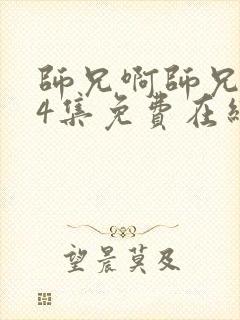 師兄啊師兄
4集免費在線
望晨莫及